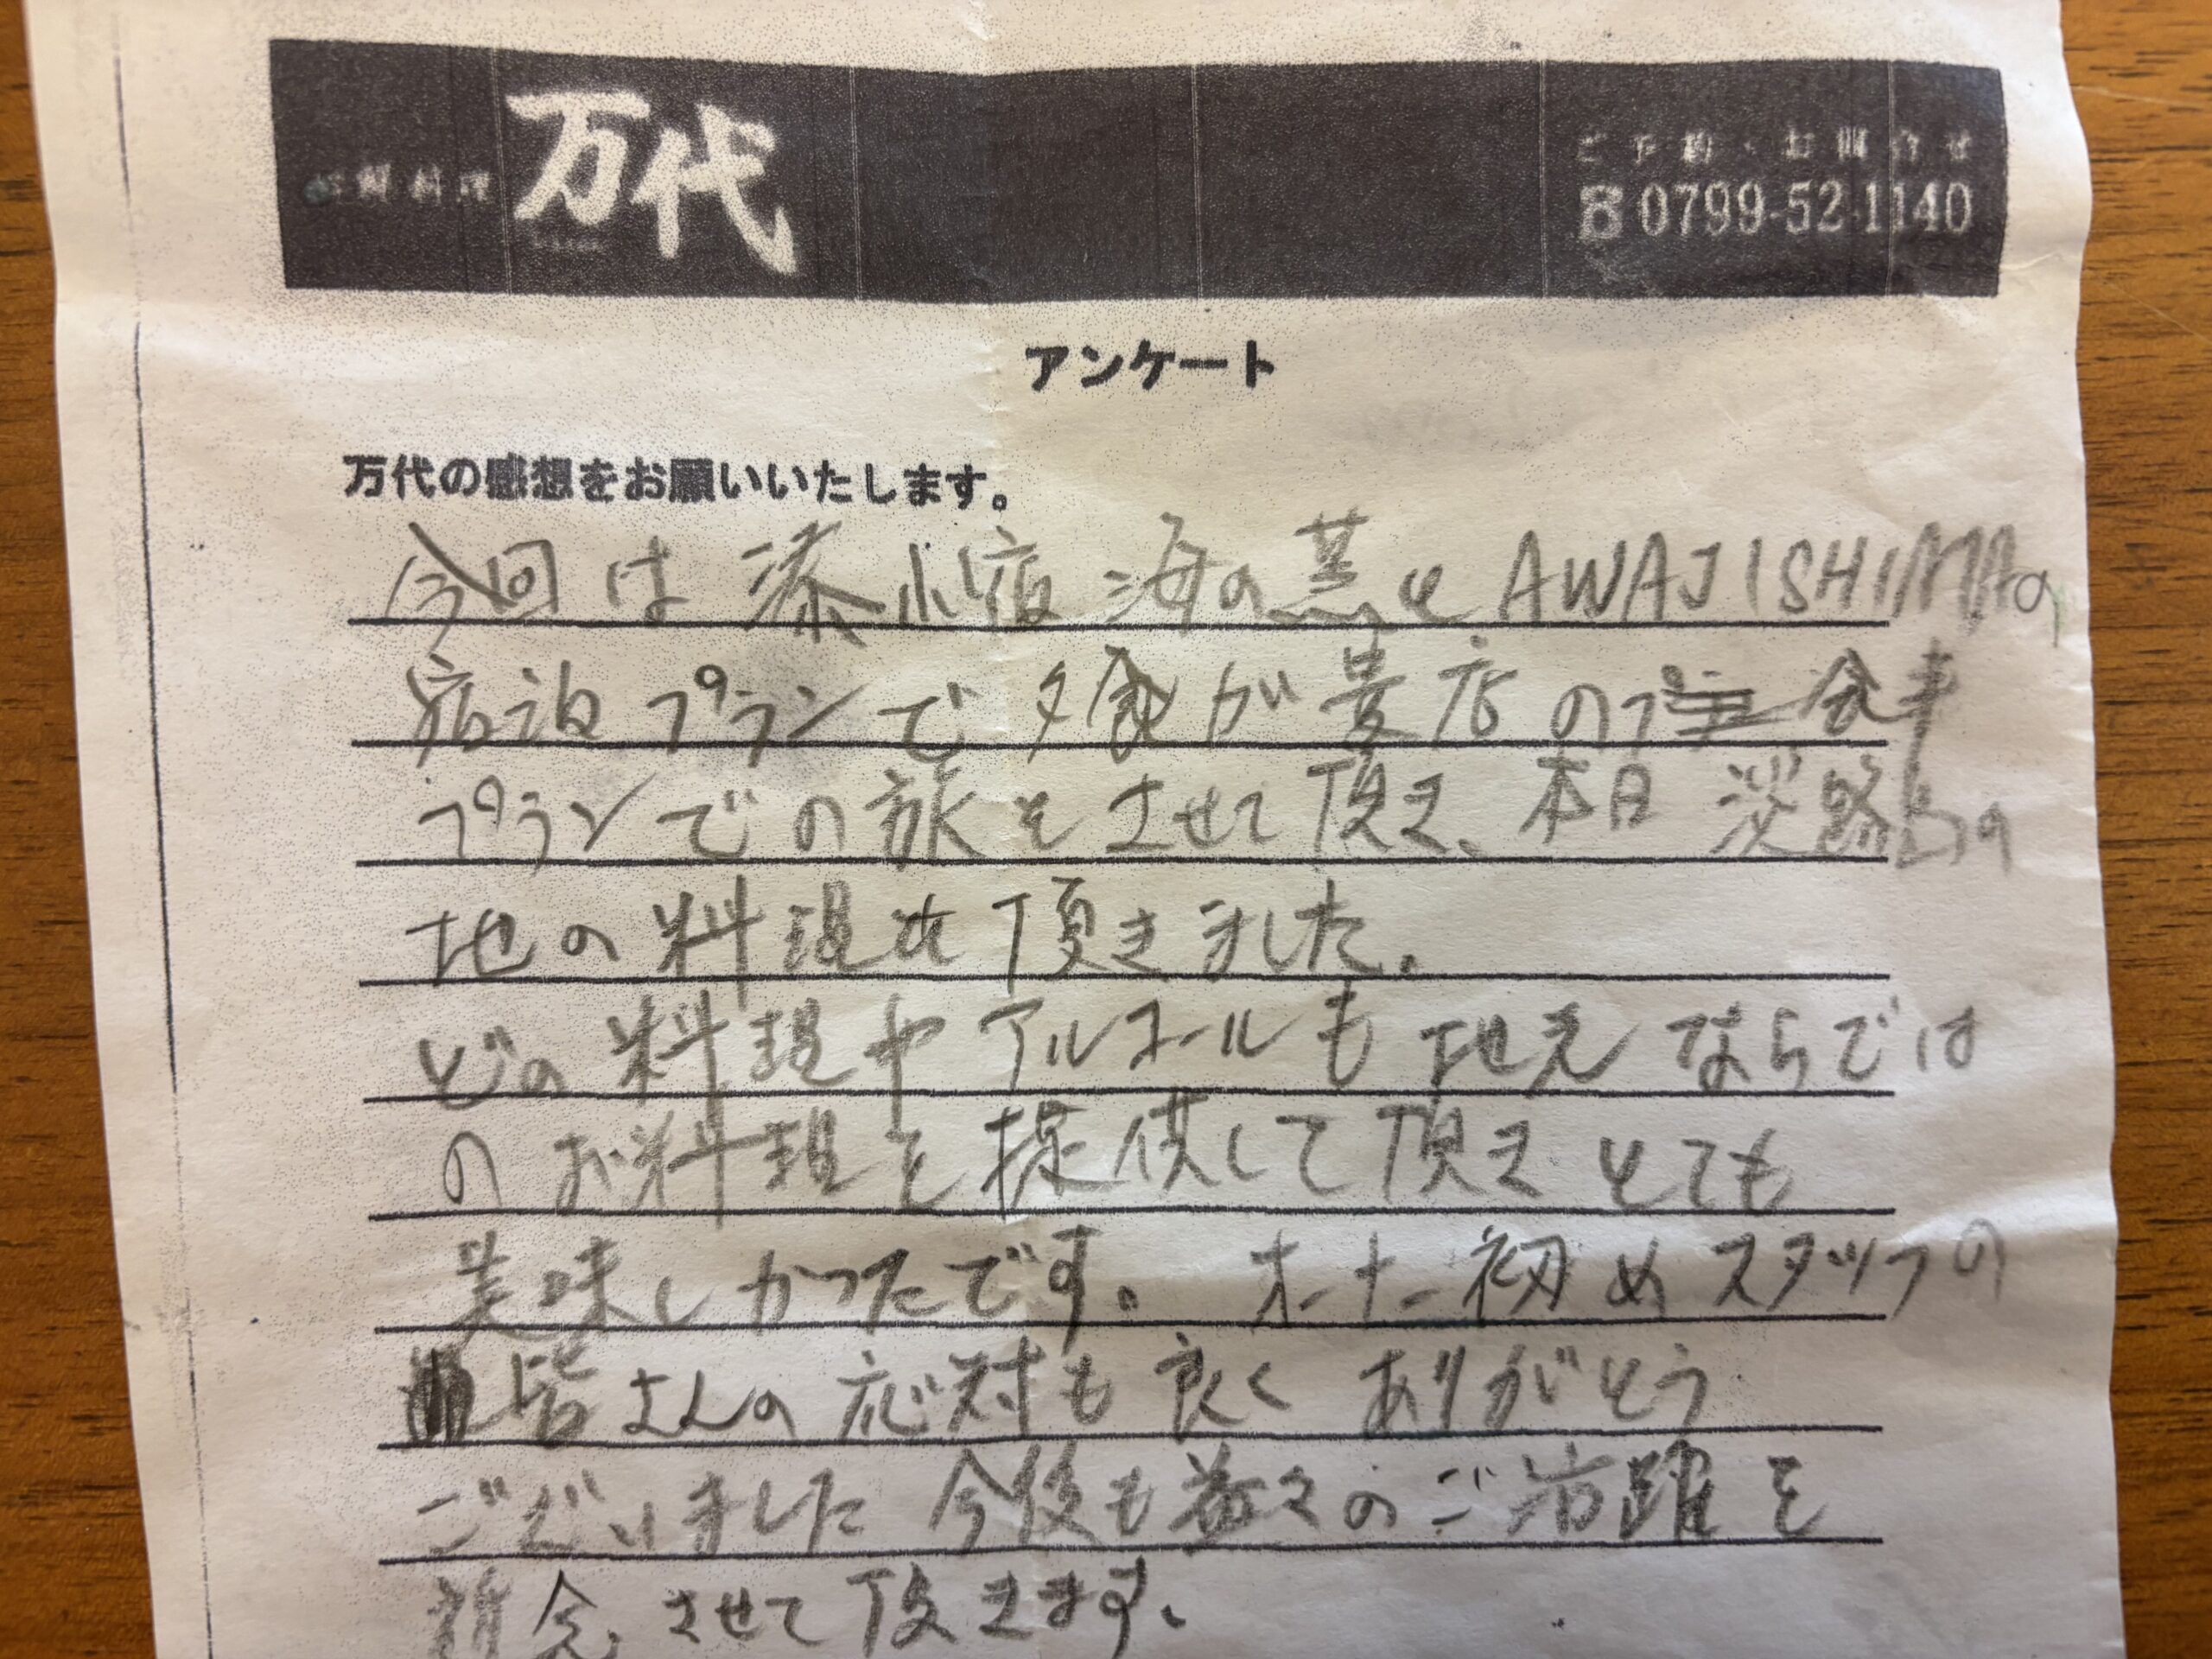 料理 万代
ご予約・お問合せ
☎0799-52-1140
アンケート
万代の感想をお願いいたします。
今回は 漆 小宿 海の薫と AWAJISHIMAの
宿泊プランで 夕食が貴店の 食事
プランでの旅をさせて頂き、本日 淡路島の
地の料理を頂きました。
どの料理やアルコールも 地元 ならでは
の お料理を提供して頂き とても
美味しかったです。 オーナー初め スタッフの
皆さんの応対も良く ありがとう
ございました 今後も益々のご活躍を
祈念させて頂きます。